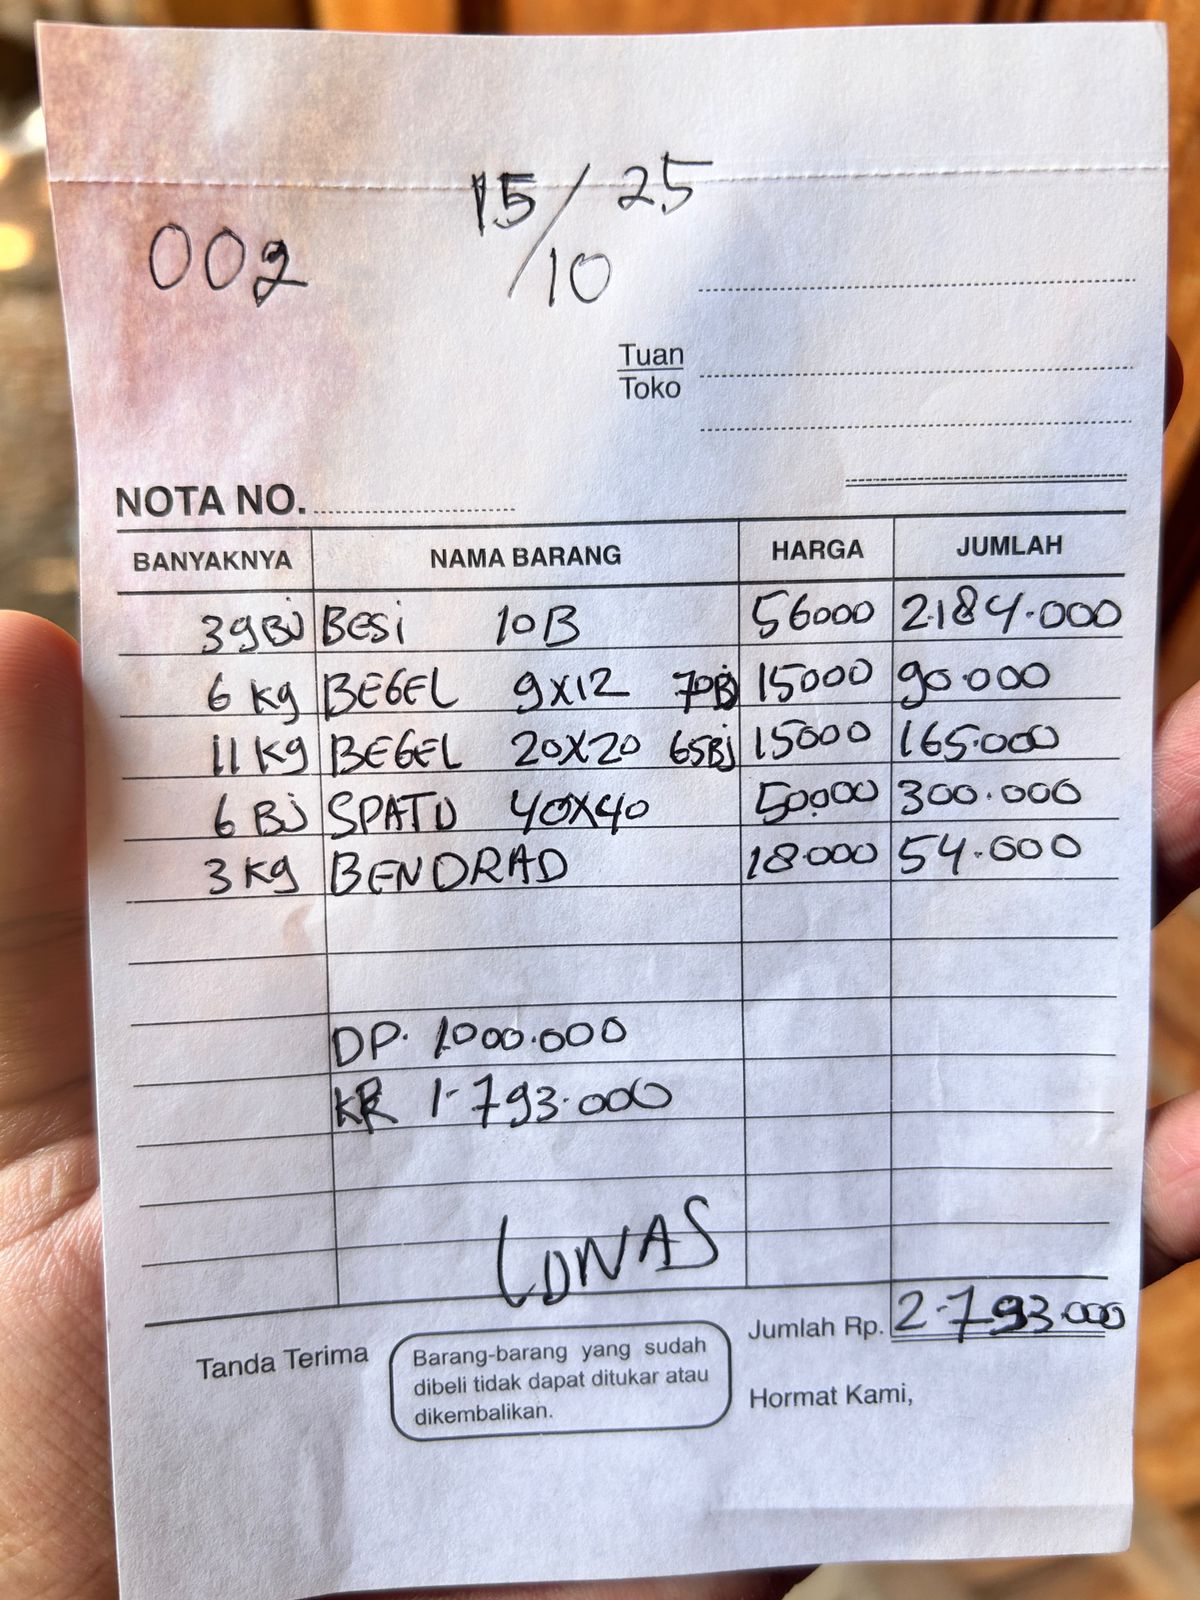 15/10 25
002
Tuan
Toko
NOTA NO.
BANYAKNYA NAMA BARANG HARGA JUMLAH
39 BJ BESI 10B 56000 2.184.000
6 kg BEGEL 9X12 70BJ 15000 90.000
11 kg BEGEL 20X20 65BJ 15000 165.000
6 BJ SPATU 40X40 50.000 300.000
3 kg BENDRAD 18.000 54.000
DP. 1.000.000
KR 1.793.000
LUNAS
Jumlah Rp. 2.793.000
Tanda Terima
Barang-barang yang sudah
dibeli tidak dapat ditukar atau
dikembalikan.
Hormat Kami,